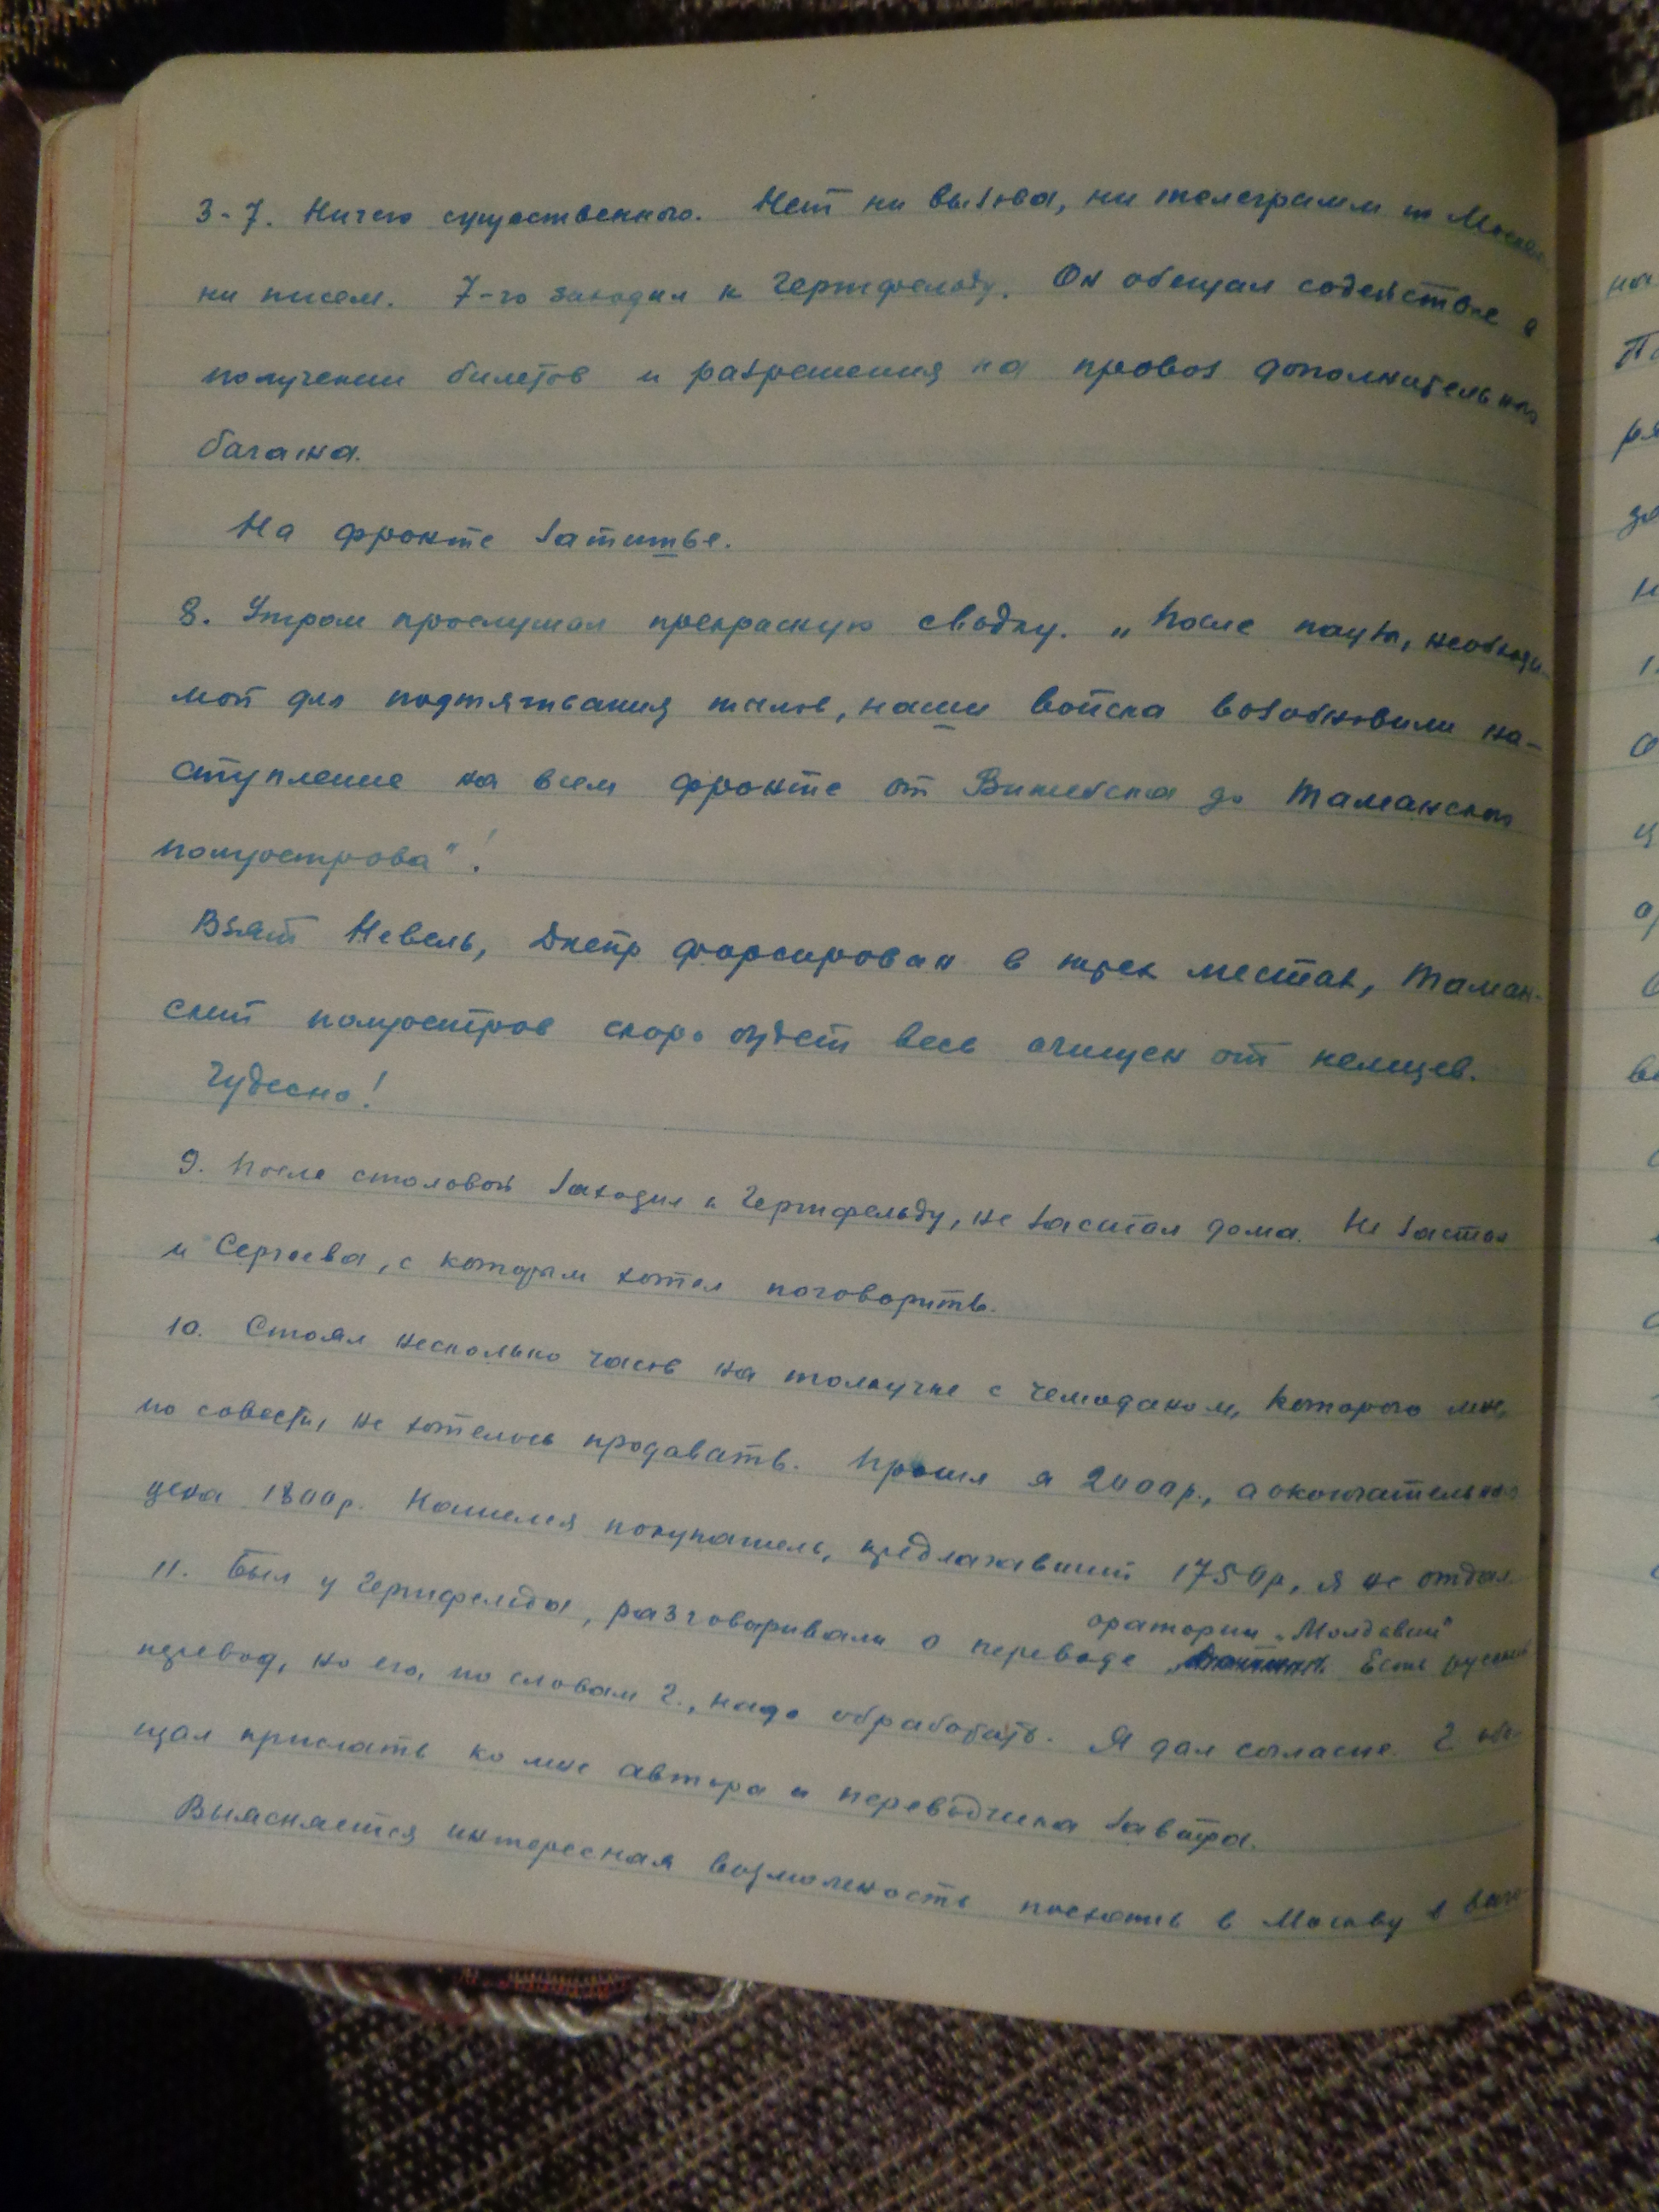 3-7. Ничего существенного. Нет ни вызова, ни телеграмм из Москвы
ни писем. 7-го заходил к Гершфельду. Он обещал содействие в
получении билетов и разрешения на провоз дополнительного
багажа.
На фронте затишье.
8. Утром прослушал прекрасную сводку. „После паузы, необходи-
мой для подтягивания тылов, наши войска возобновили на-
ступление на всем фронте от Витебска до Таманского
полуострова"!
Взят Невель, Днепр форсирован в трех местах, Таман-
ский полуостров скоро будет весь очищен от немцев.
Чудесно!
9. После столовой заходил к Гершфельду, не застал дома. Не застал
и Сергеева, с которым хотел поговорить.
10. Стоял несколько часов на толкучке с чемоданом, которого мне,
по совести, не хотелось продавать. Просил я 2000 р., а окончательная
цена 1800 р. Нашелся покупатель, предлагавший 1750 р, я не отдал.
11. Был у Гершфельда, разговаривали о переводе
оратории „Молдавий"
Есть русский
перевод, но его, по словам Г., надо обработать. Я дал согласие. Г обе-
щал прислать ко мне автора и переводчика завтра.
Выясняется интересная возможность поехать в Москву в ваго-